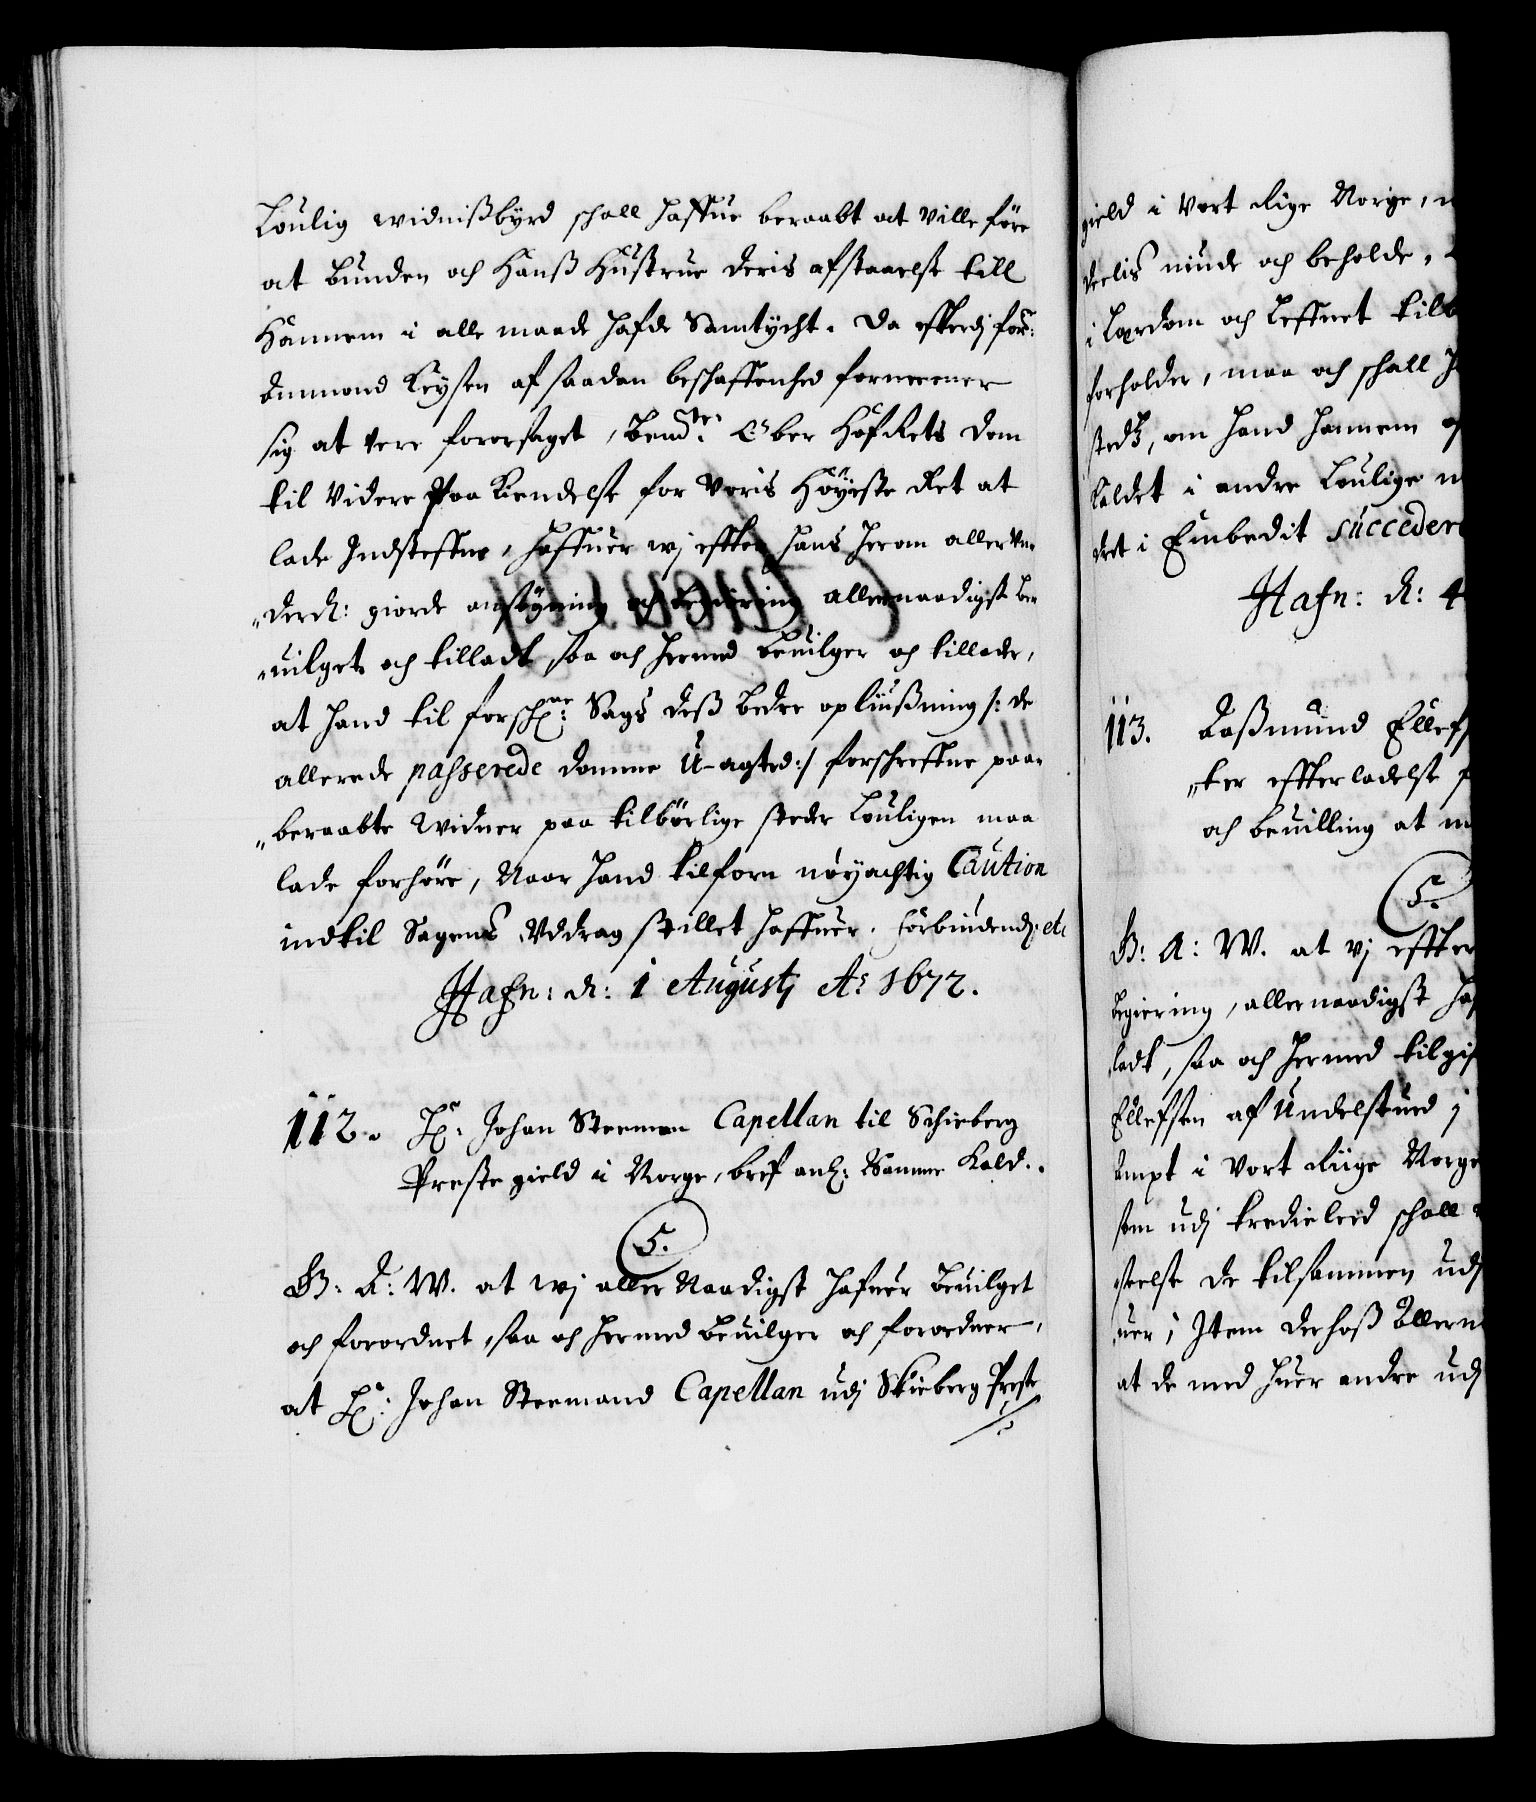 Loulig widnißbyrd schall haffue beraabt at ville före
at Bunden och Hanß Hustrue deris afstaaelse till
Hannem i alle maade hafde Samtycht. Da effterdj for:
Ammond Keysen af saadan beschaffenhed formeener
sig at vere foraarsaget, bemdte: Ober HofRets dom
til Videre Paa Kiendelse for Voris Höyeste Ret at
lade Indsteffne, haffuer wj effter hans herom aller vn
„derd: giorde ansögning och begiering allernaadigst be
„uilget och tilladt saa och hermed beuilger och tillader,
at hand til forschne: Sags deß bedre opliußning /: de
allerede passerede domme U-agted :/ forschreffne paa-
„beraabte Widner paa tilbörlige steder Louligen maa
lade forhöre, Naar hand tilforn nöyachtig Caution
indtil Sagens Uddrag stillet haffuer. Forbiudendj: etc
Hafn: d: 1 Augustj Ao 1672.
112. Hr: Johan Steeman Capellan til Schieberg
Prestegield i Norge, bref anl: Samme Kald.
5.
G: A: W. at wj aller Naadigst hafuer beuilget
och forordnet, saa och hermed beuilger och forordner,
at Hr: Johan Steemand Capellan udj Skieberg Preste
gield i Vort Rige Norge,
deelis niude och beholde,
i Lærdom och Leffnet
forholder, maa och schall
stedß, om hand hannem
kaldet i andre Loulige
det i Embedit succedere
Hafn: d: 4
113. Aaßmund Ellefs
„ter effterladelse
och beuilling at
5.
G: A: W. at vj effter
begiering, allernaadigst
ladt, saa och hermed
Ellefsen af Undelstued j
Ampt i Vort Riige Norge
som udj tredie leed schall
„reelse de tilsammen udj
uer; Item derhoß Allern
at de med huer andre udj